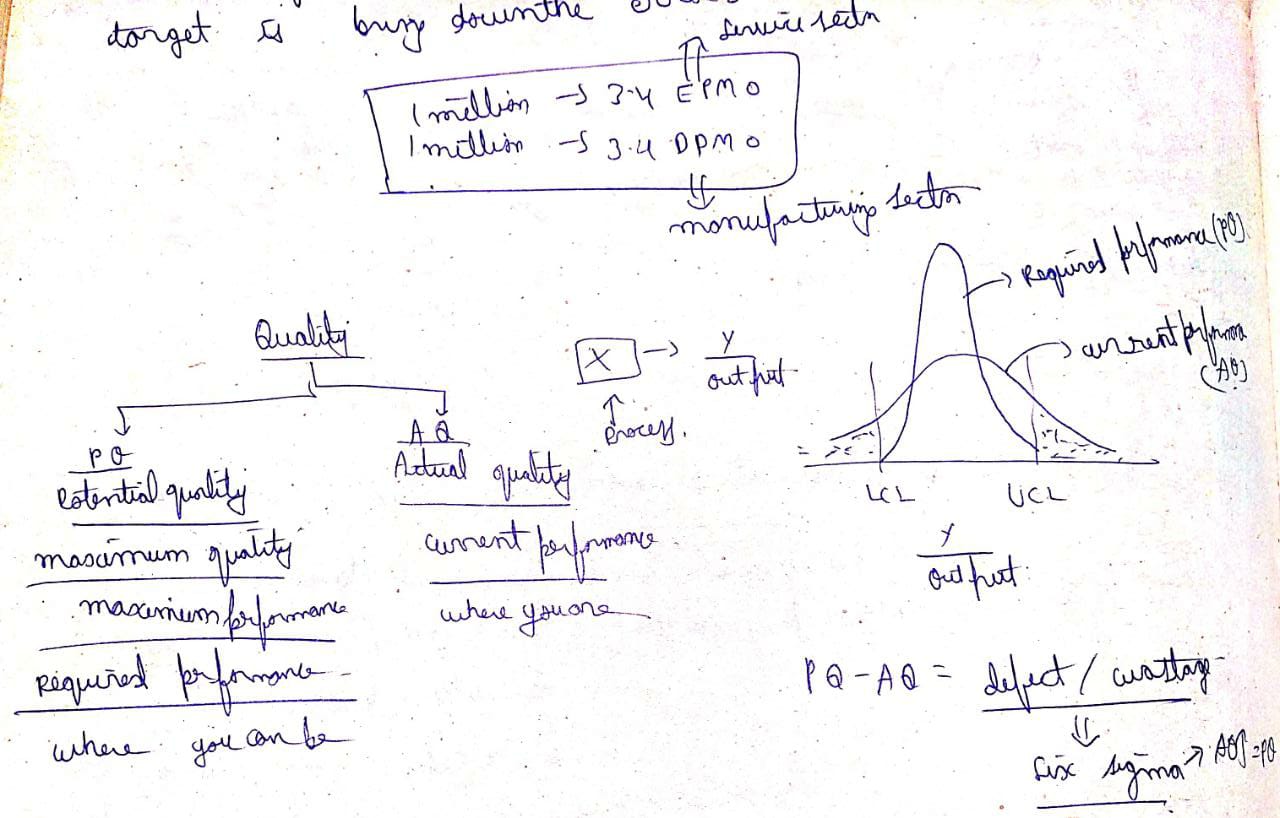 target is bring down the
service sector
1 million → 3.4 EPMO
1 million → 3.4 DPMO
manufacturing sector
Required performance (PQ)
current performance (AQ)
Quality
X → Y
output
process.
PQ
Potential quality
maximum quality
maximum performance
Required performance
where you can be
AQ
Actual quality
current performance
where you are
LCL UCL
Y
output
PQ - AQ = defect / wastage
Six sigma → AQ↑ = PQ